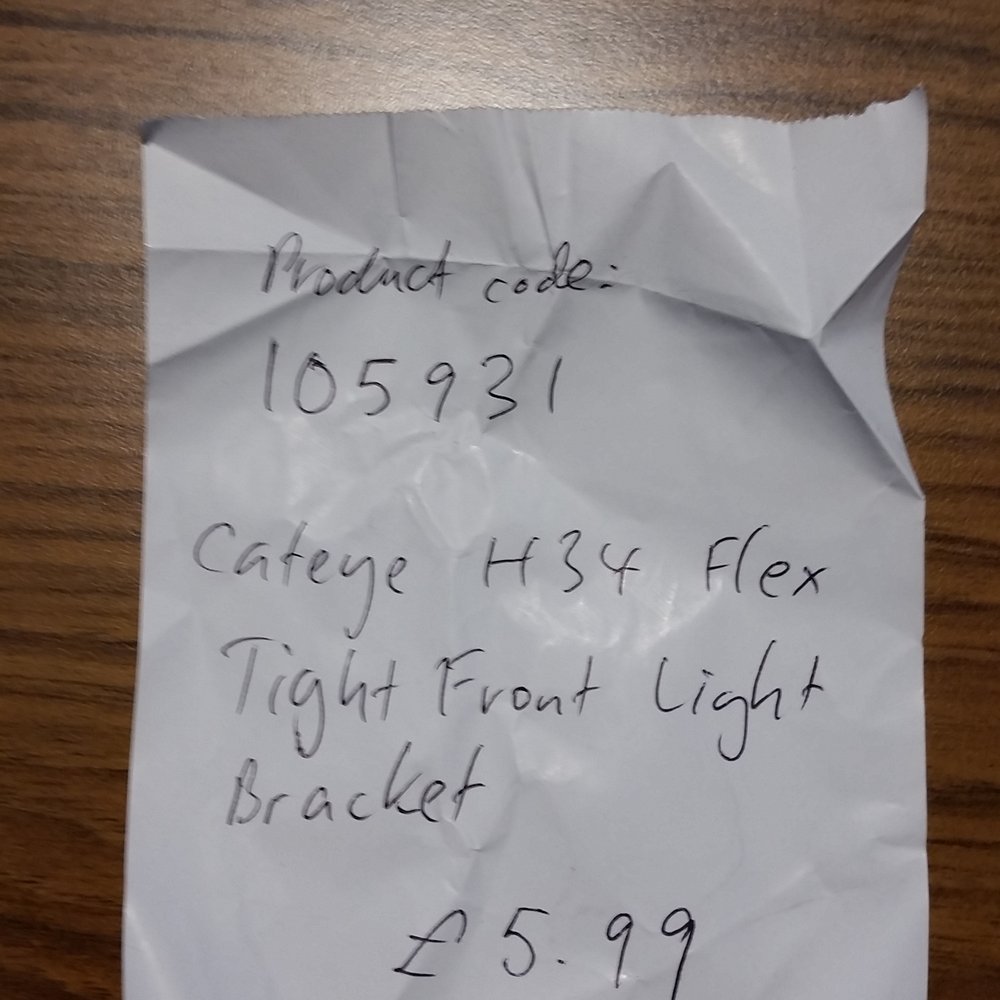 Product code:
105931
Cateye H34 Flex
Tight Front Light
Bracket
£5.99